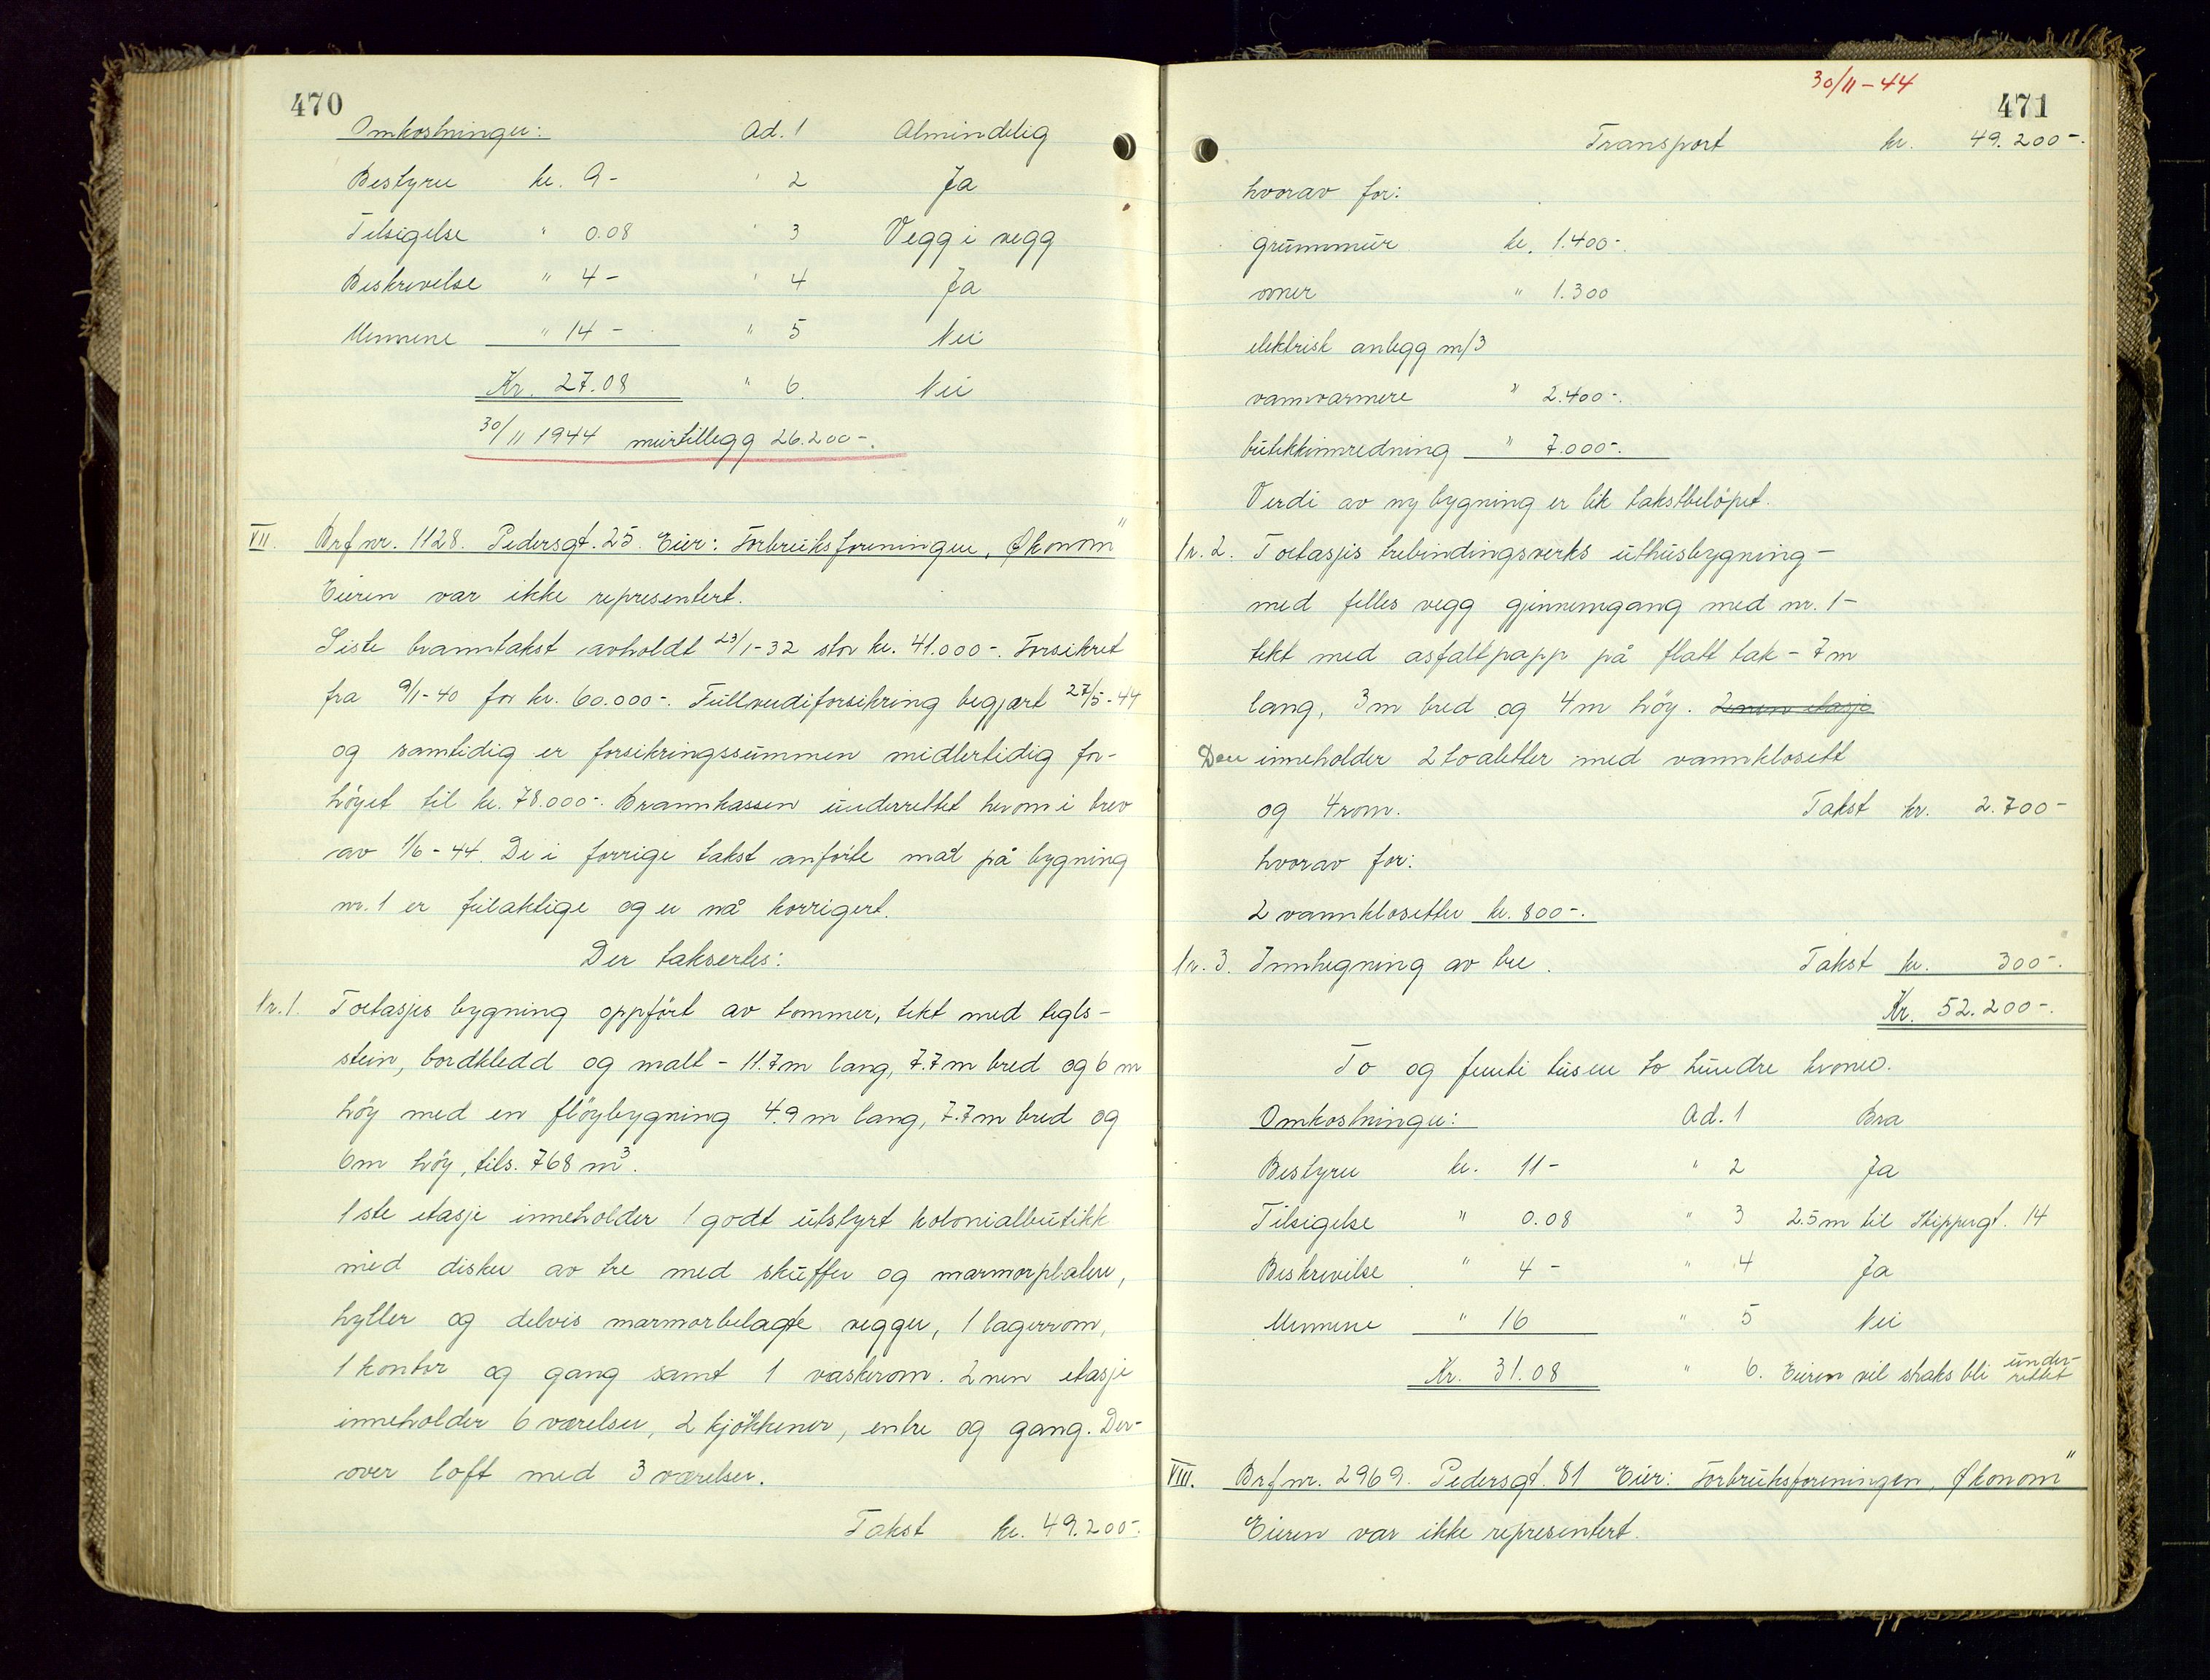 470
Omkostninger: Ad. 1 Almindelig
Bestyrer kr. 9- " 2 Ja
Tilsigelse " 0.08 " 3 Vegg i vegg
Beskrivelse " 4- " 4 Ja
Mennene " 14- " 5 Nei
Kr. 27.08 " 6. Nei
30/11 1944 murtillegg 26.200-.
VII. Brf nr. 1128. Pedersgt. 25. Eier: Forbruksforeningen „Økonom"
Eieren var ikke representert.
Siste branntakst avholdt 23/1-32 stor kr. 41.000-. Forsikret
fra 9/1-40 for kr. 60.000-. Fullverdiforsikring begjært 27/5-44
og samtidig er forsikringssummen midlertidig for-
höyet til kr. 78.000-. Brannkassen underrettet herom i brev
av 1/6-44. De i forrige takst anförte mål på bygning
nr. 1 er feilaktige og er nå korrigert.
Der takserles:
Nr. 1. Toetasjes bygning oppfört av tömmer, tekt med tegls-
stein, bordkledd og malt - 11.7m lang, 7.7m bred og 6 m
höy med en flöybygning 4.9m lang, 7.7m bred og
6m höy, tils. 768 m³.
1ste etasje inneholder 1 godt utstyrt kolonialbutikk
med disker av tre med skuffer og marmorplater,
hyller og delvis marmorbelagte vegger, 1 lagerrom,
1 kontor og gang samt 1 vaskerom. 2nen etasje
inneholder 6 værelser, 2 kjökkener, entre og gang. Der-
over loft med 3 værelser.
Takst kr. 49.200-.
30/11-44
471
Transport kr. 49.200-.
hvorav for:
grunnmur kr. 1.400-.
ovner " 1.300
elektrisk anlegg m/3
vannvarmere " 2.400-.
butikkinnredning " 7.000-.
Verdi av ny bygning er lik takstbelöpet.
Nr. 2. Toetasjes trebindingsverks uthusbygning -
med felles vegg gjennemgang med nr. 1-
tekt med asfaltpapp på flatt tak - 7m
lang, 3m bred og 4m höy. 2nen etasje
Den inneholder 2 toaletter med vannklosett
og 4 rom. Takst kr. 2.700-
hvorav for:
2 vannklosetter kr. 800-.
Nr. 3. Innhegning av tre. Takst kr. 300-.
Kr. 52.200-.
To og femti tusen to hundre kroner.
Omkostninger: Ad. 1 Bra
Bestyrer kr. 11- " 2 Ja
Tilsigelse " 0.08 " 3 2.5m til Skippergt. 14
Beskrivelse " 4- " 4 Ja
Mennene " 16 " 5 Nei
Kr. 31.08 " 6. Eieren vil straks bli under-
rettet
VIII. Brf nr. 2969. Pedersgt. 81 Eier: Forbruksforeningen „Økonom"
Eieren var ikke representert.